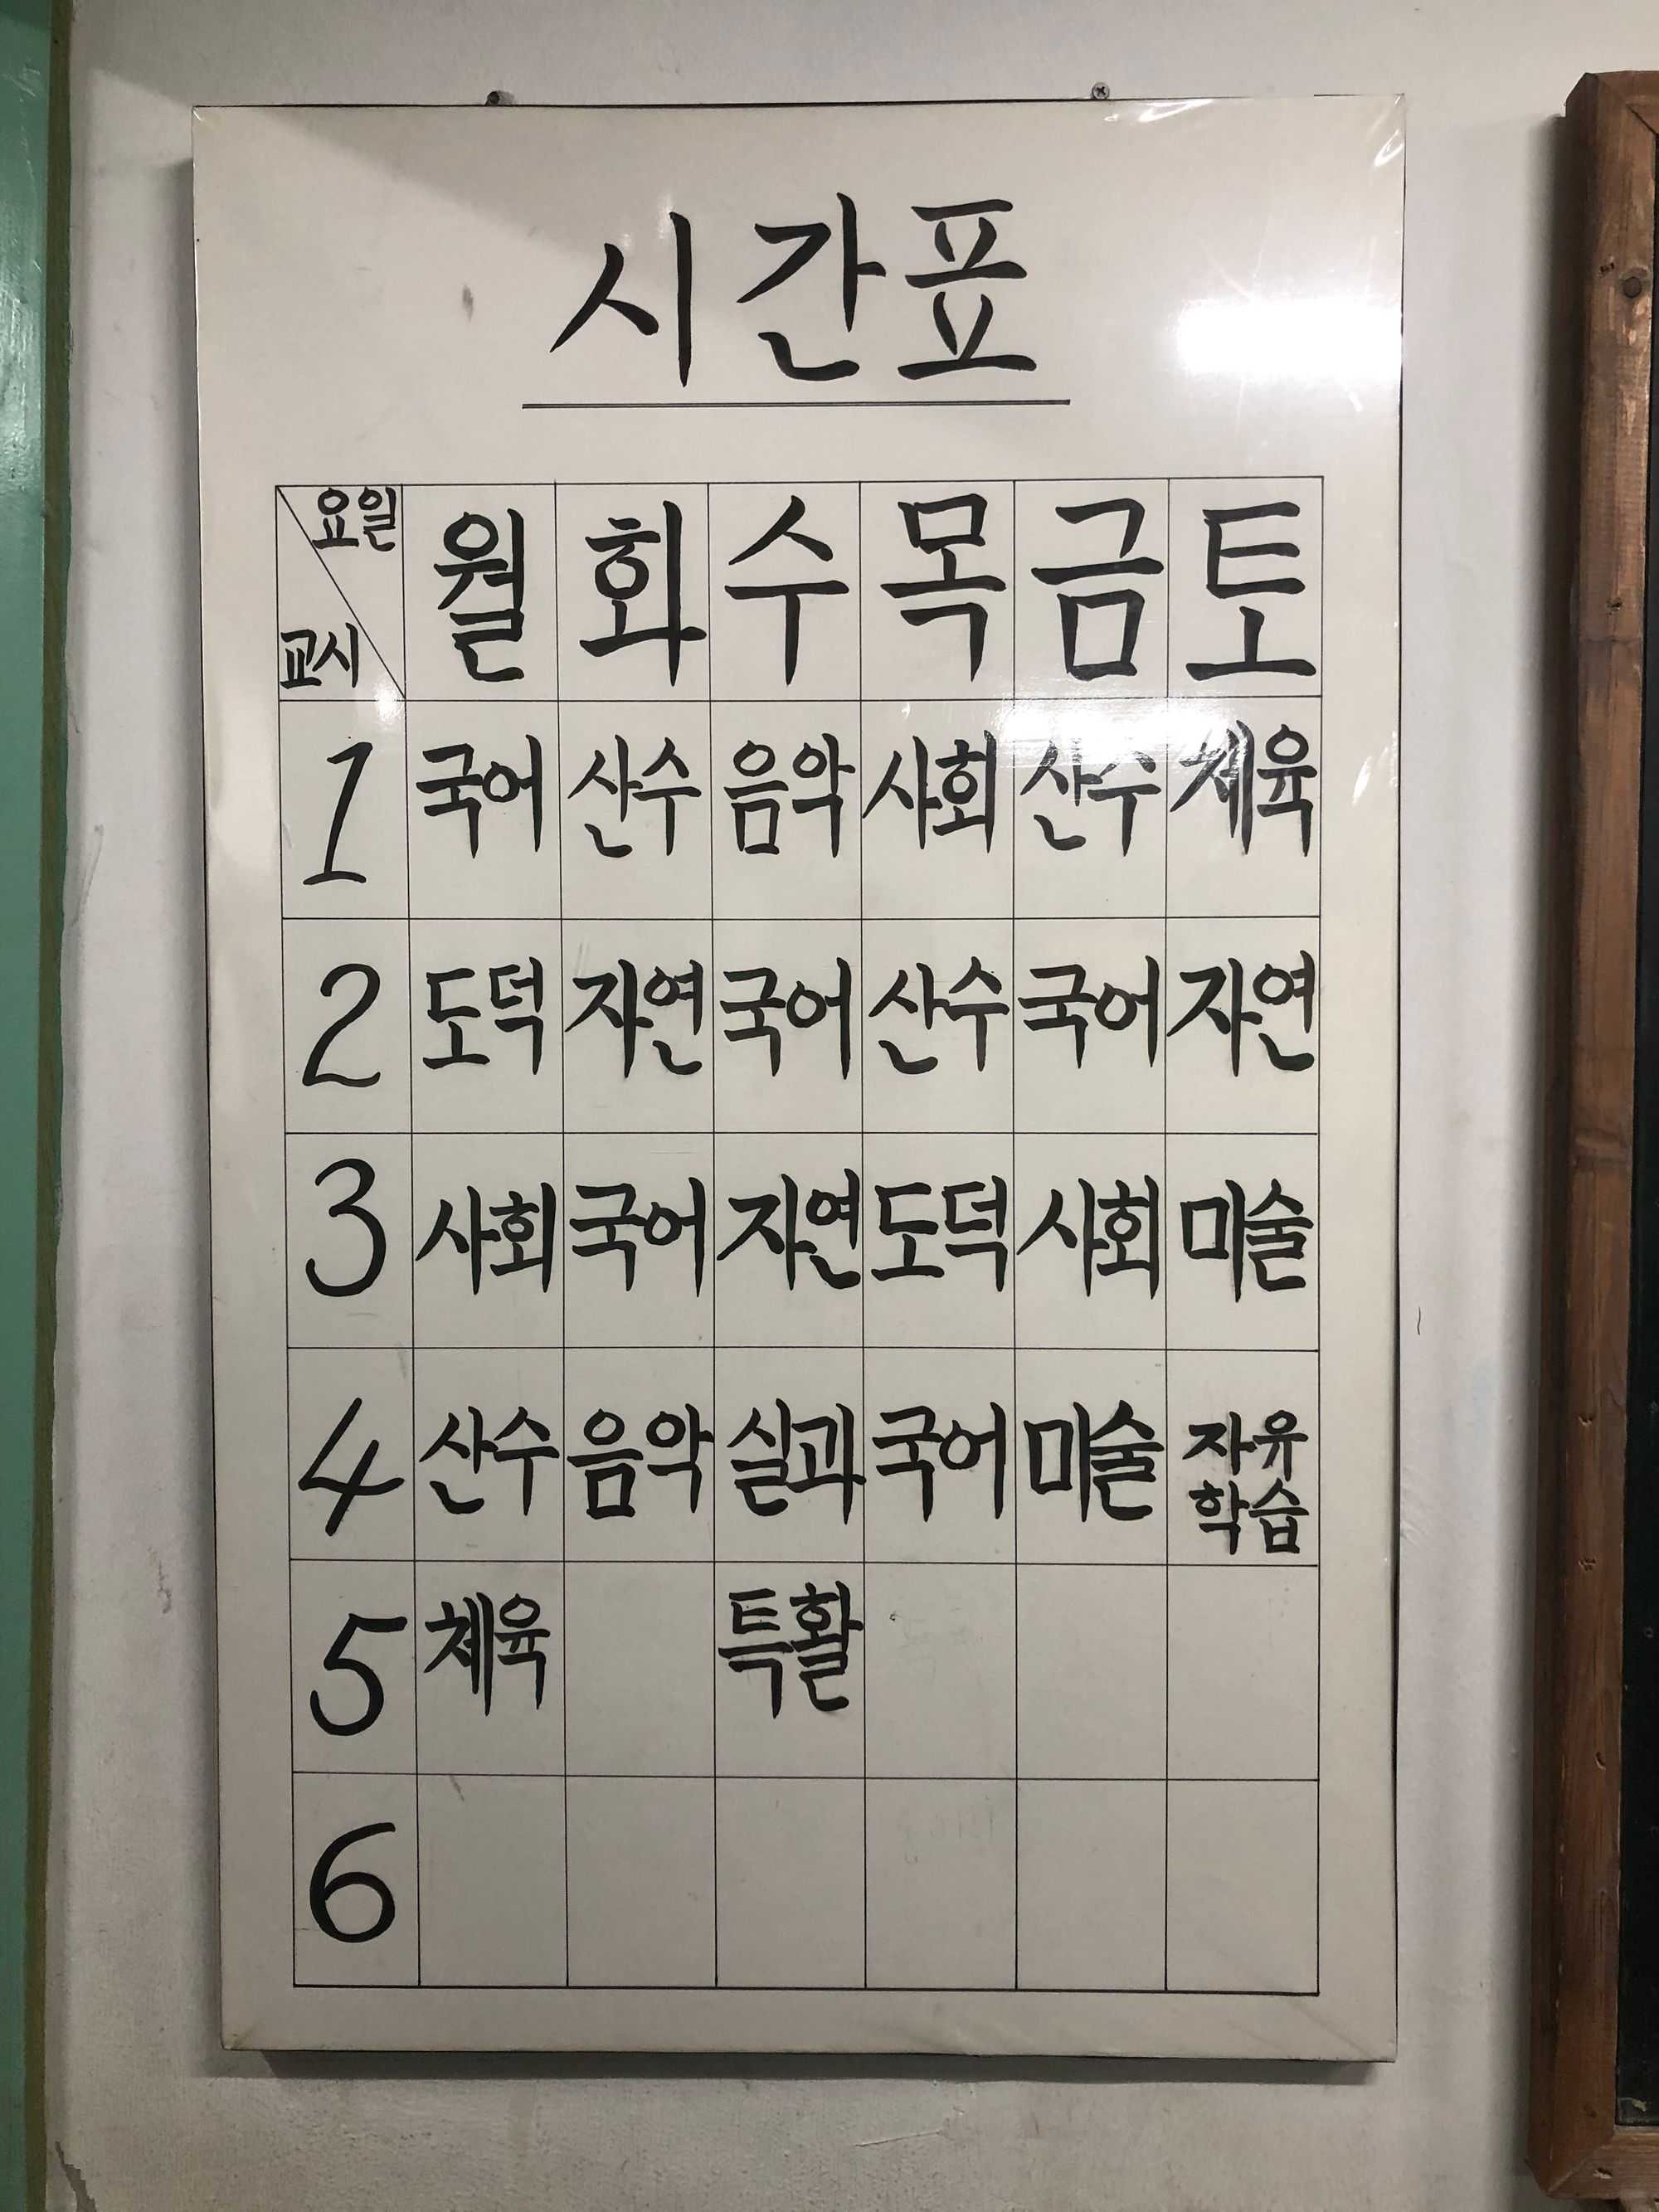 시간표
요일 월 화 수 목 금 토
교시
1 국어 산수 음악 사회 산수 체육
2 도덕 자연 국어 산수 국어 자연
3 사회 국어 자연 도덕 사회 미술
4 산수 음악 실과 국어 미술 자유
학습
5 체육 특활
6